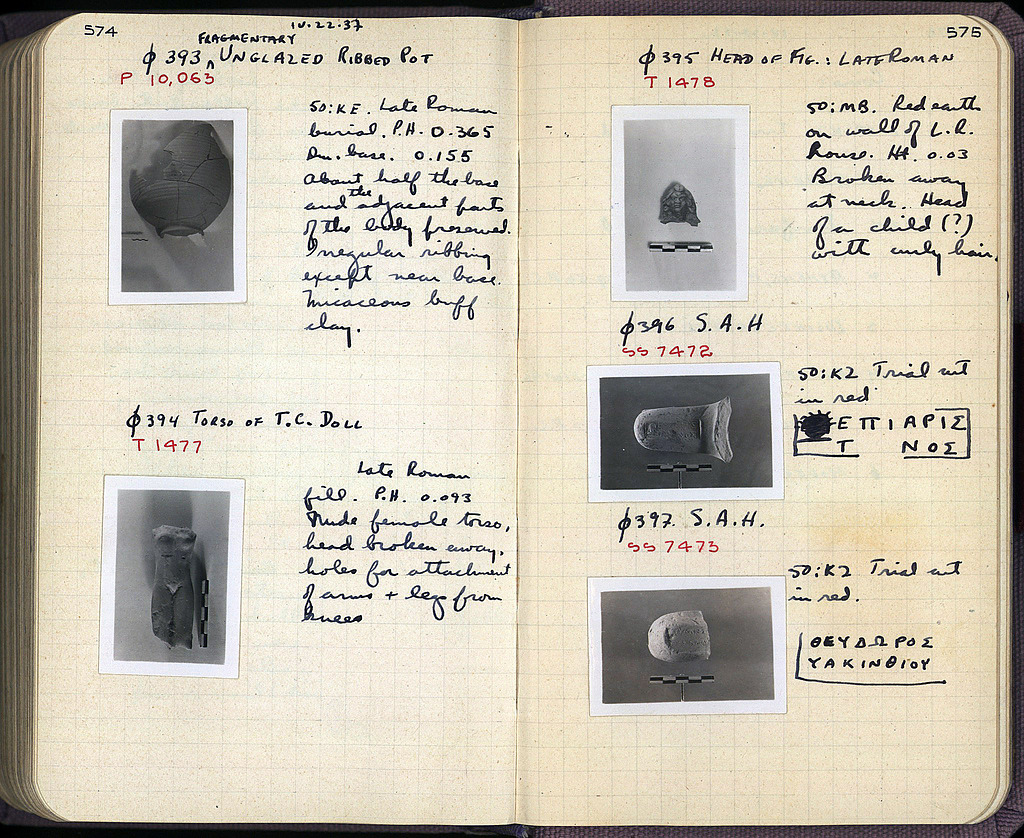 574
10.22.37
FRAGMENTARY
ϕ 393 ^ UNGLAZED RIBBED POT
P 10,063
50:KE. Late Roman
burial. P.H. 0.365
Dm. base. 0.155
About half the base
and the adjacent parts
of the body preserved.
Irregular ribbing
except near base.
Micaceous buff
clay.
ϕ394 TORSO OF T.C. DOLL
T 1477
Late Roman
fill. P.H. 0.093
Nude female torso,
head broken away,
holes for attachment
of arms + legs from
knees
575
ϕ395 HEAD OF FIG.: LATE ROMAN
T 1478
50:MB. Red earth
on wall of L.R.
House. Ht. 0.03
Broken away
at neck. Head
of a child (?)
with curly hair.
ϕ396 S.A.H
SS 7472
50:K2 Trial cut
in red
ΕΠΙΑΡΙΣ
Τ ΝΟΣ
ϕ397. S.A.H.
SS 7473
50:K2 Trial cut
in red.
ΘΕΥΔΩΡΟΣ
ΥΑΚΙΝΘΙΟΥ